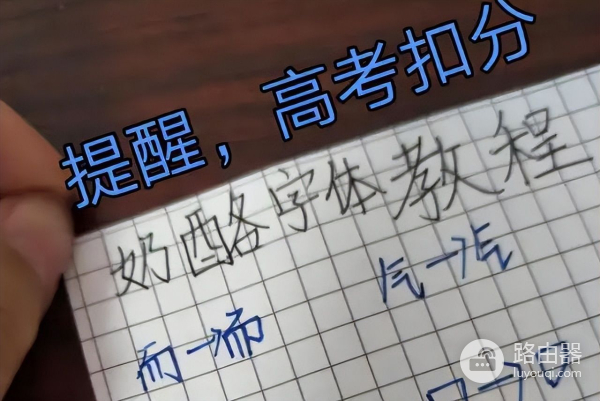 提醒，高考扣分
奶酪字体教程
气→气
而→而
路由器
luyouqi.com